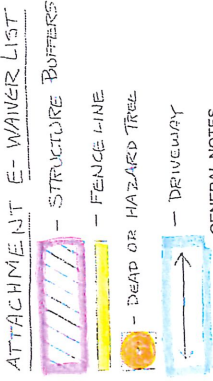 ATTACHMENT E - WAIVER LIST
- STRUCTURE BUFFERS
- FENCE LINE
- DEAD OR HAZARD TREE
- DRIVEWAY
GENERAL NOTES